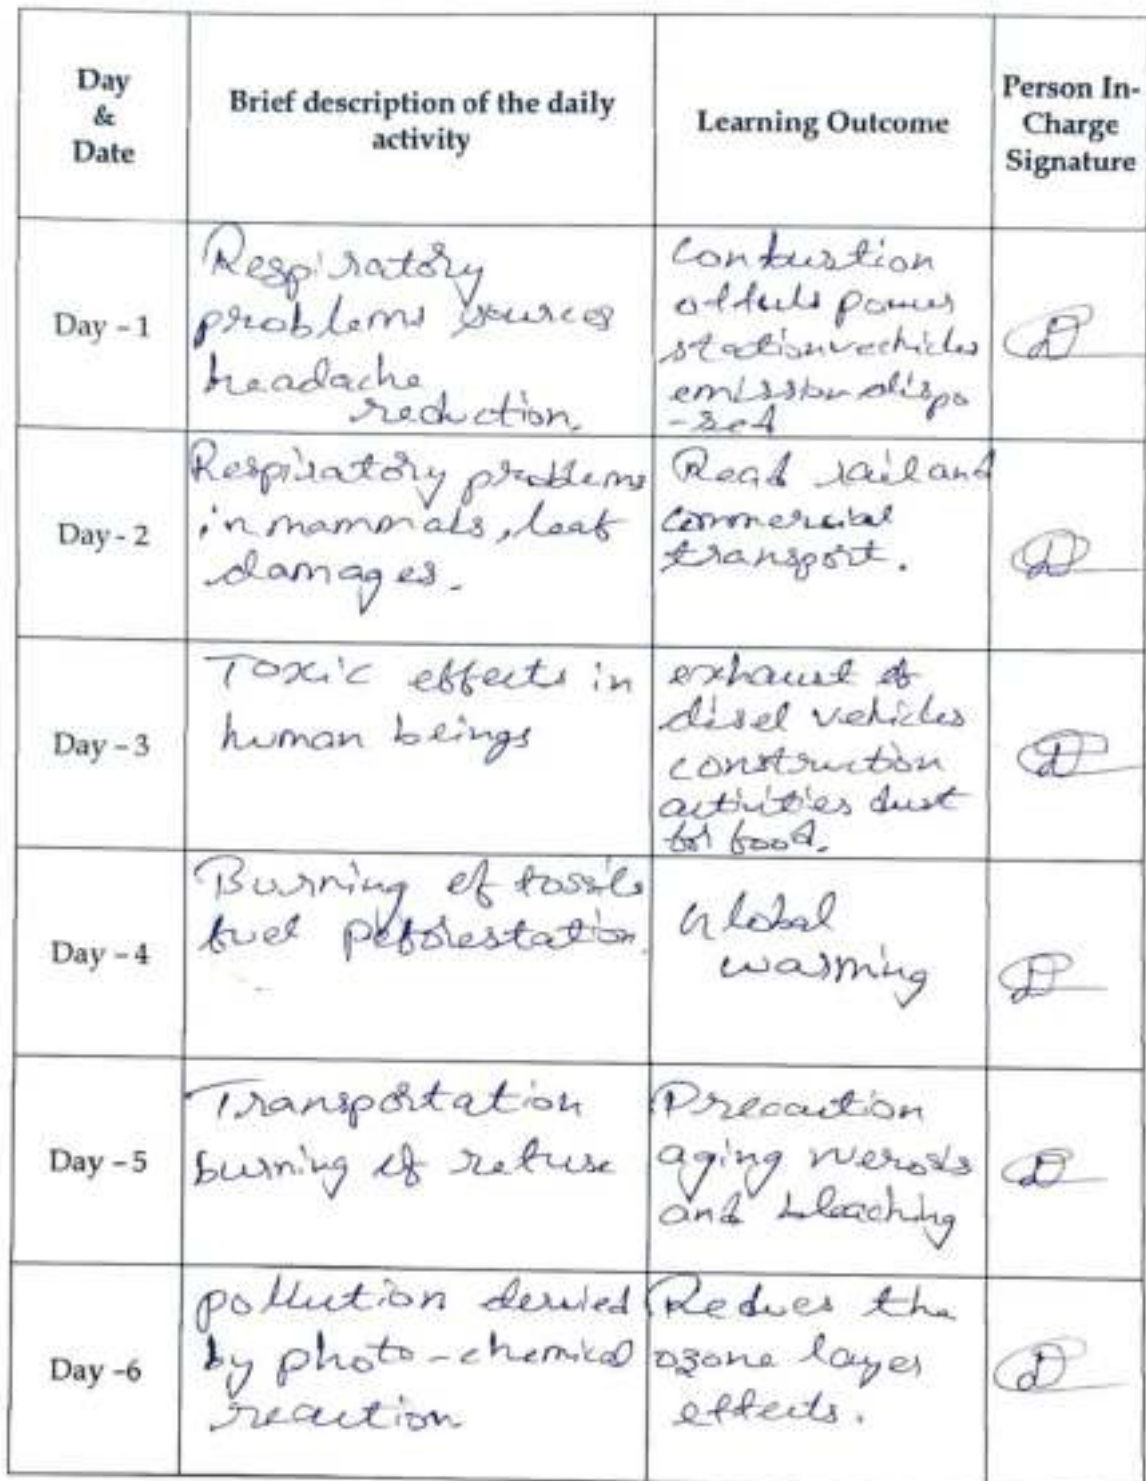 Day
&
Date
Brief description of the daily
activity
Learning Outcome
Person In-
Charge
Signature
Day - 1
Respiratory
problems sources
headache
reduction.
Conbustion
of fuls power
station vechicles
emission dispo
-sed
Day - 2
Respiratory problems
in mammals, leaf
damages.
Road rail and
commercial
transport.
Day - 3
Toxic effects in
human beings
exhaust of
disel vehicles
construction
activities dust
for food.
Day - 4
Burning of fossils
fuel Deforestation.
Global
warming
Day - 5
Transportation
burning of refuse
Precaution
aging
and bleaching
Day -6
pollution deruied
by photo-chemical
reaction
Reduces the
ozone layer
effects.